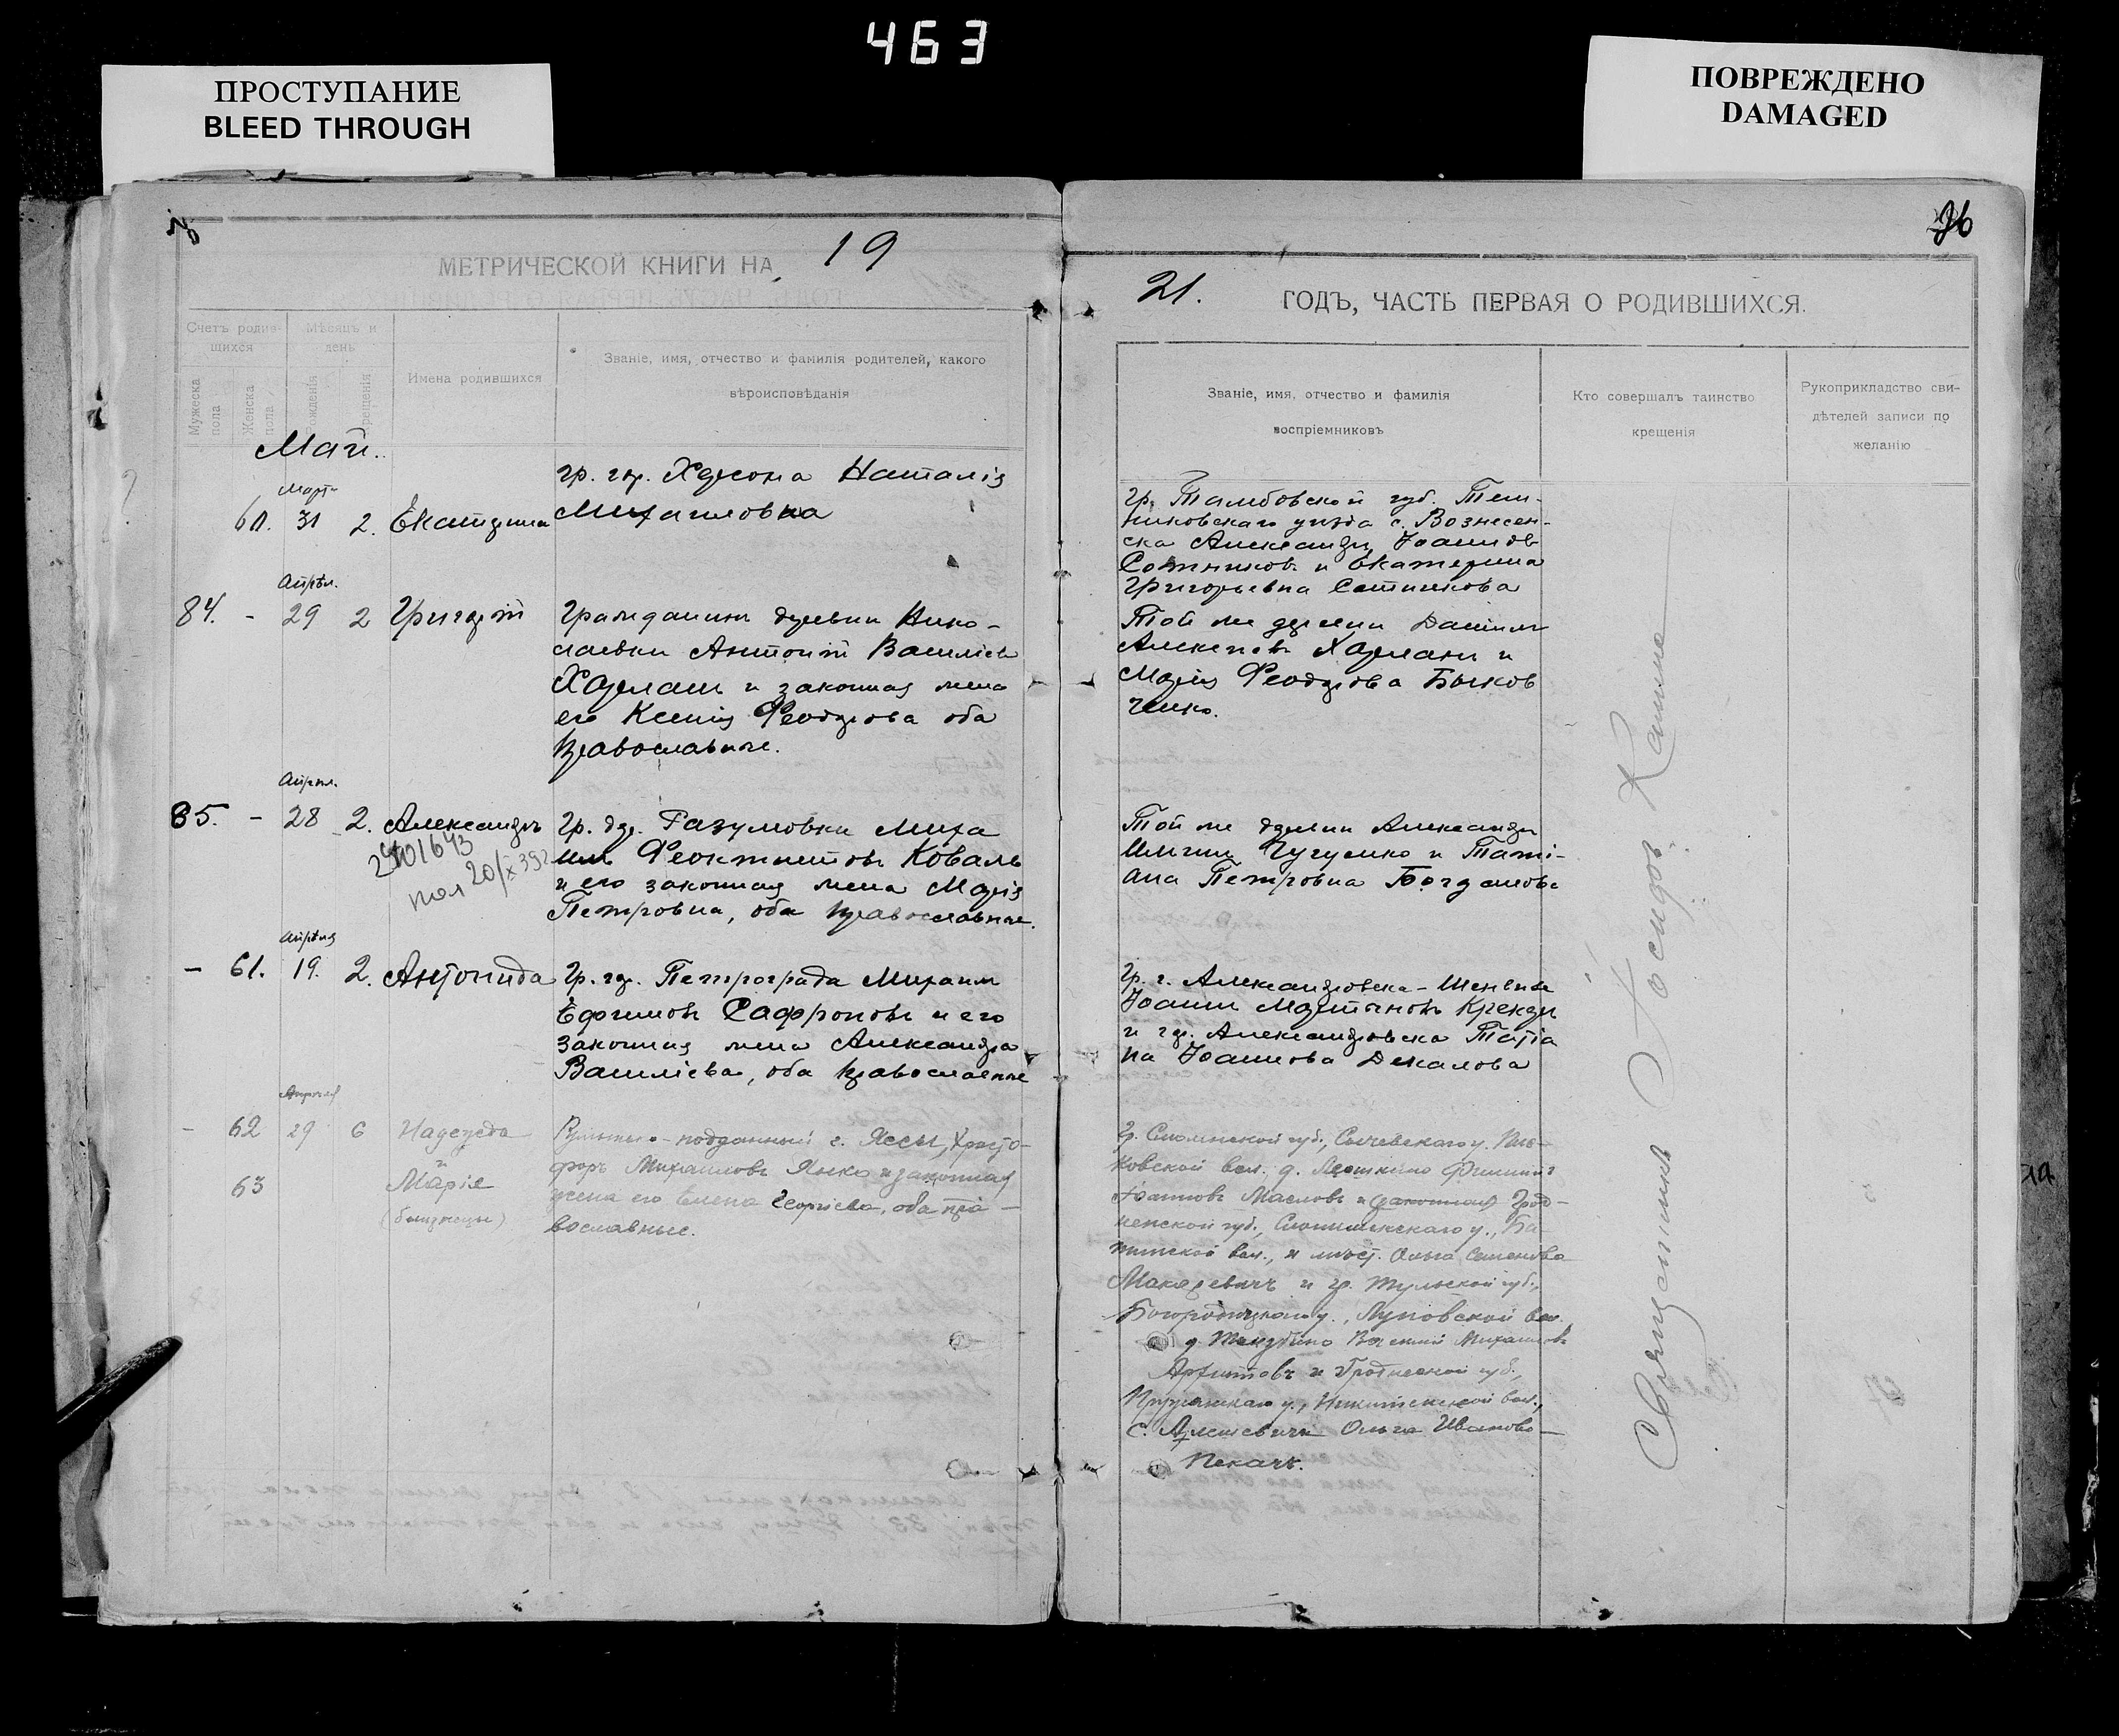 463
ПРОСТУПАНИЕ
BLEED THROUGH
ПОВРЕЖДЕНО
DAMAGED
МЕТРИЧЕСКОЙ КНИГИ НА 19
21. ГОДЪ, ЧАСТЬ ПЕРВАЯ О РОДИВШИХСЯ.
Счетъ родив-
шихся
Мужеска пола
Женска пола
Мѣсяцъ и
день
рожденія
крещенія
Имена родившихся
Званіе, имя, отчество и фамилія родителей, какого
вѣроисповѣданія
Званіе, имя, отчество и фамилія
воспріемниковъ
Кто совершалъ таинство
крещенія
Рукоприкладство сви-
дѣтелей записи по
желанію
Май.
Март
60. 31 2. Екатерина
гр. гор. Херсона Наталія
Михаиловна
Гр. Тамбовской губ. Тем-
никовскаго уѣзда с. Вознесен-
ска Александръ Іоанновъ
Сотниковъ и Екатерина
Григорьевна Сотникова
Апрѣл.
84. - 29 2 Григорій
Гражданинъ деревни Нико-
лаевки Антоній Василіевъ
и законная жена
его Ксенія Феодорова оба
православные.
Той же деревни Даніилъ
Алексіевъ и
Марія Феодорова Бычков
ченко.
Апрѣл.
85. - 28 2. Александръ
2401643
20/X 392
Гр. дер. Разумовки Миха
илъ Феоктистовъ Коваль
и его законная жена Марія
Петровна, оба православные.
Той же деревни Александръ
Ильичъ и Таті-
ана Петровна Богданова
Апрѣля
- 61. 19. 2. Антонида
Гр. гор. Петрограда Михаилъ
Ефимовъ Сафроновъ и его
законная жена Александра
Василіева, оба православные
Гр. г. Александровска-
Іоаннъ Мартыновъ
и гор. Александровска Татіа
на Іоаннова Декалова
Апрѣля
- 62 29 6 Надежда
и
63 Марія
(близнецы)
Румынско-подданный г. Яссы, Христо-
форъ Михаиловъ Янко и законная
жена его Елена Георгіева, оба пра-
вославные.
Гр. Смоленской губ., Сычевскаго у.
вол. д. Филиппъ
Іоанновъ Масловъ и (законная) Грод-
ненской губ., Слонимскаго у.,
вол., Ольга Семенова
Макаревичъ и гр. Тульской губ.,
Богородицкаго у., вол.
д. Василій Михаиловъ
и Гродненской губ.,
Пружанскаго у., вол.,
с. Ольга Иванова
Пекачъ.
Священникъ Каппа